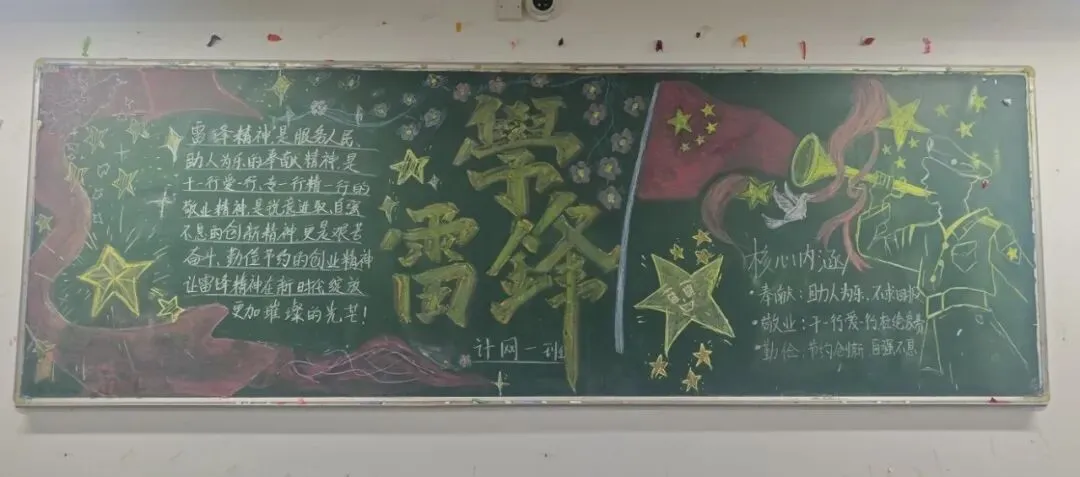 雷锋精神是服务人民、
助人为乐的奉献精神,是
干一行爱一行、专一行精一行的
敬业精神,是锐意进取、自强
不息的创新精神,更是艰苦
奋斗、勤俭节约的创业精神
让雷锋精神在新时代绽放
更加璀璨的光芒!
學
雷鋒
计网一班
核心内涵
·奉献:助人为乐、不求回报
·敬业:干一行爱一行
·勤俭:节约创新 自强不息